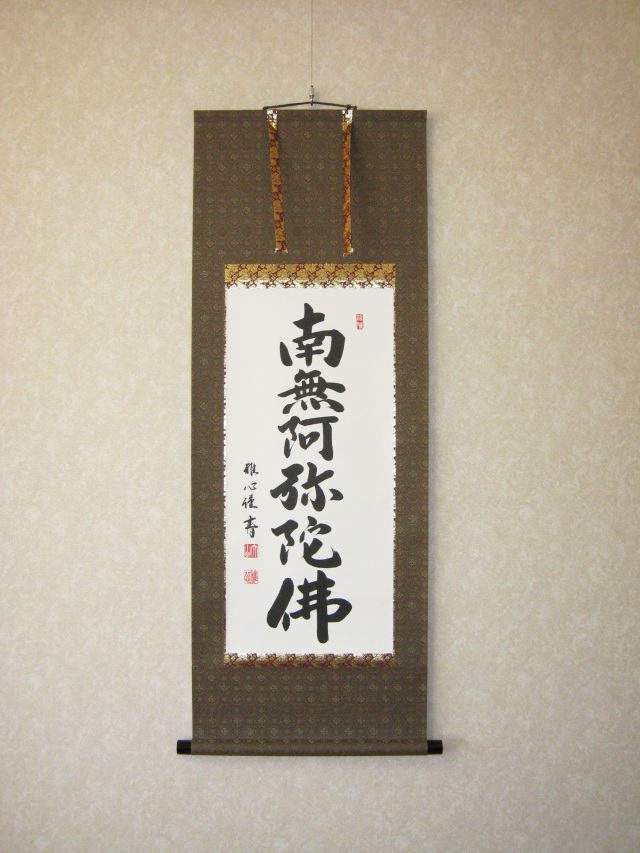 南無阿弥陀佛
雅心佳壽